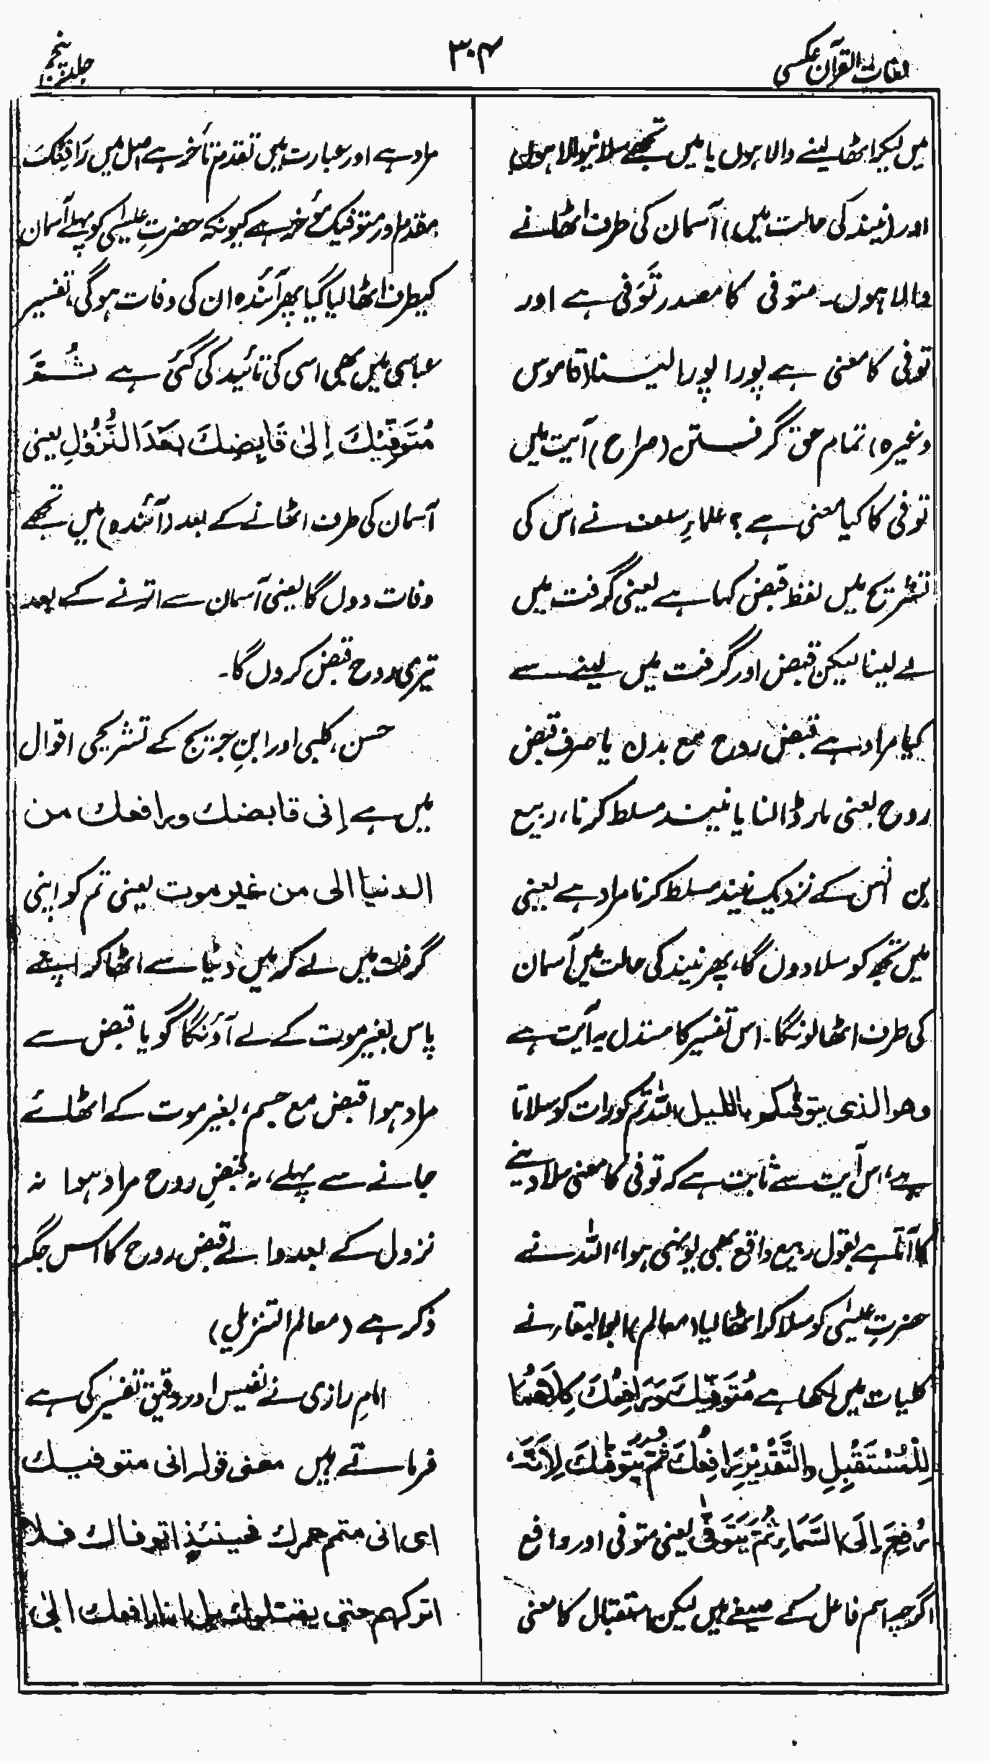 لغات القرآن عکسی
۳۰۴
جلد پنجم
میں لیکر اٹھا لینے والا ہوں یا میں تجھے سلانیوالا ہوں
اور (نیند کی حالت میں) آسمان کی طرف اٹھانے
والا ہوں۔ متوفی کا مصدر تَوَفّی ہے اور
توفی کا معنی ہے پورا پورا لینا (قاموس
وغیرہ) تمام حق گرفتن (صراح) آیت میں
توفی کا کیا معنی ہے؟ علماءِ سلف نے اس کی
تشریح میں لفظ قبض کہا ہے یعنی گرفت میں
لے لینا لیکن قبض اور گرفت میں لینے سے
کیا مراد ہے قبض روح مع بدن یا صرف قبض
روح یعنی مار ڈالنا یا نیند مسلط کرنا، ربیع
بن انس کے نزدیک نیند مسلط کرنا مراد ہے یعنی
میں تجھ کو سلادوں گا، پھر نیند کی حالت میں آسمان
کی طرف اٹھا لونگا۔ اس تفسیر کا مستدل یہ آیت ہے
وھو الذی یتوفٰکم باللیل، اللہ تم کو رات کو سلاتا
ہے، اس آیت سے ثابت ہے کہ توفی کا معنی سلا دینے
کا آتا ہے بقول ربیع واقع بھی یونہی ہوا، اللہ نے
حضرتِ عیسٰی کو سلا کر اٹھا لیا (معالم) ابوالبقاء نے
کلیات میں لکھا ہے مُتَوَفِّیْکَ وَرَافِعُکَ کِلَاھُمَا
لِلْمُسْتَقْبِلِ وَالتَّقْدِیْرُ رَافِعُکَ ثم لِاَنَّہٗ
رُفِعَ اِلَی السَّمَاءِ ثُمَّ یُتَوَفّٰی یعنی متوفی اور رافع
اگرچہ اسم فاعل کے صیغے ہیں لیکن استقبال کا معنی
مراد ہے اور عبارت میں تقدم تأخر ہے اصل میں رَافِعُکَ
مقدم اور متوفیک مؤخر ہے کیونکہ حضرتِ عیسٰی کو پہلے آسمان
کیطرف اٹھا لیا گیا پھر آئندہ ان کی وفات ہوگی، تفسیر
عباسی میں بھی اسی کی تائید کی گئی ہے ثُمَّ
مُتَوَفِّیْکَ اِلیٰ قَابِضُکَ بَعْدَ النُّزُوْلِ یعنی
آسمان کی طرف اٹھانے کے بعد (آئندہ) میں تجھے
وفات دوں گا یعنی آسمان سے اترنے کے بعد
تیری روح قبض کروں گا۔
حسن، کلبی اور ابنِ جریج کے تشریحی اقوال
میں ہے اِنی قابضک ورافعک من
الدنیا الی من غیر موت یعنی تم کو اپنی
گرفت میں لے کر میں دنیا سے اٹھا کر اپنے
پاس بغیر موت کے لے آؤنگا گویا قبض سے
مراد ہوا قبض مع جسم، بغیر موت کے اٹھائے
جانے سے پہلے، نہ قبضِ روح مراد ہوا نہ
نزول کے بعد والے قبض روح کا اس جگہ
ذکر ہے (معالم التنزیل)
امامِ رازی نے نفیس اور دقیق تفسیر کی ہے
فرماتے ہیں معنی قولہ انی متوفیک
ای انی متمم عمرک فحینئذٍ اتوفاک فلا
اترکھم حتی یقتلوک بل انا رافعک الیٰ